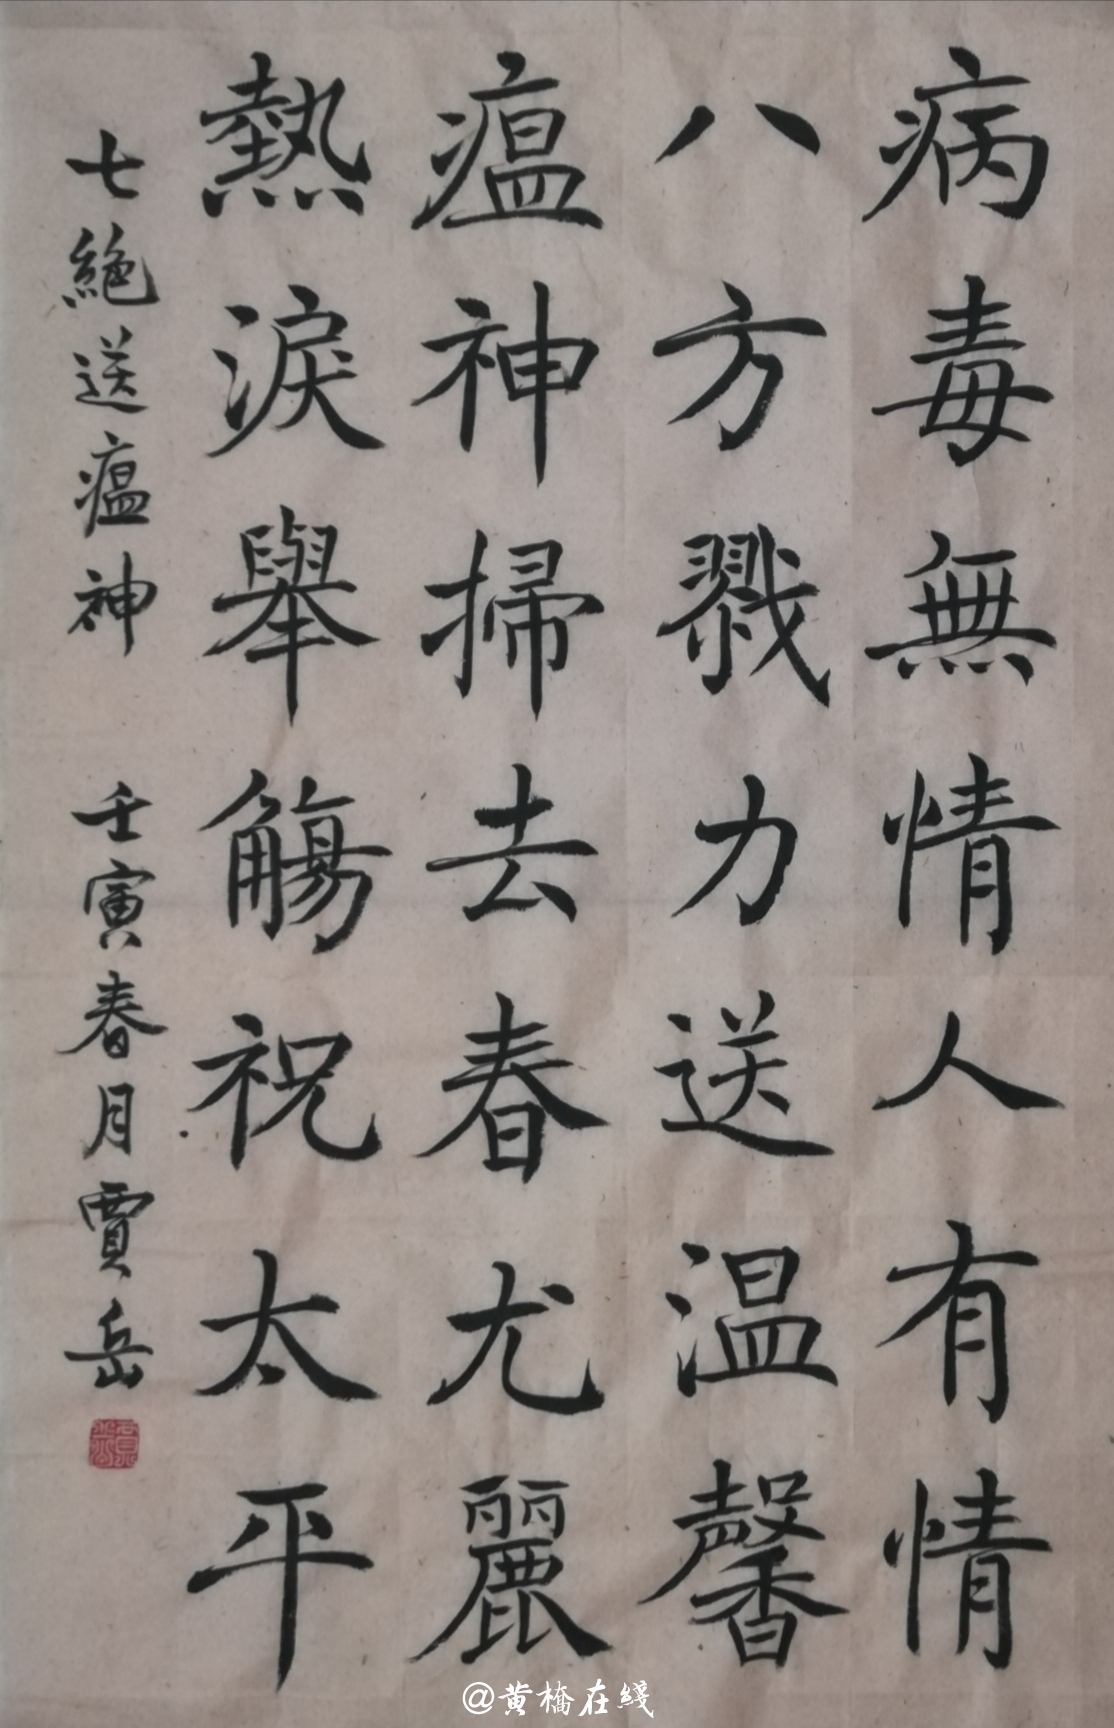 病毒無情人有情
八方戮力送温馨
瘟神掃去春尤麗
熱淚舉觴祝太平
七絶送瘟神 壬寅春月賈岳
@黄橋在綫